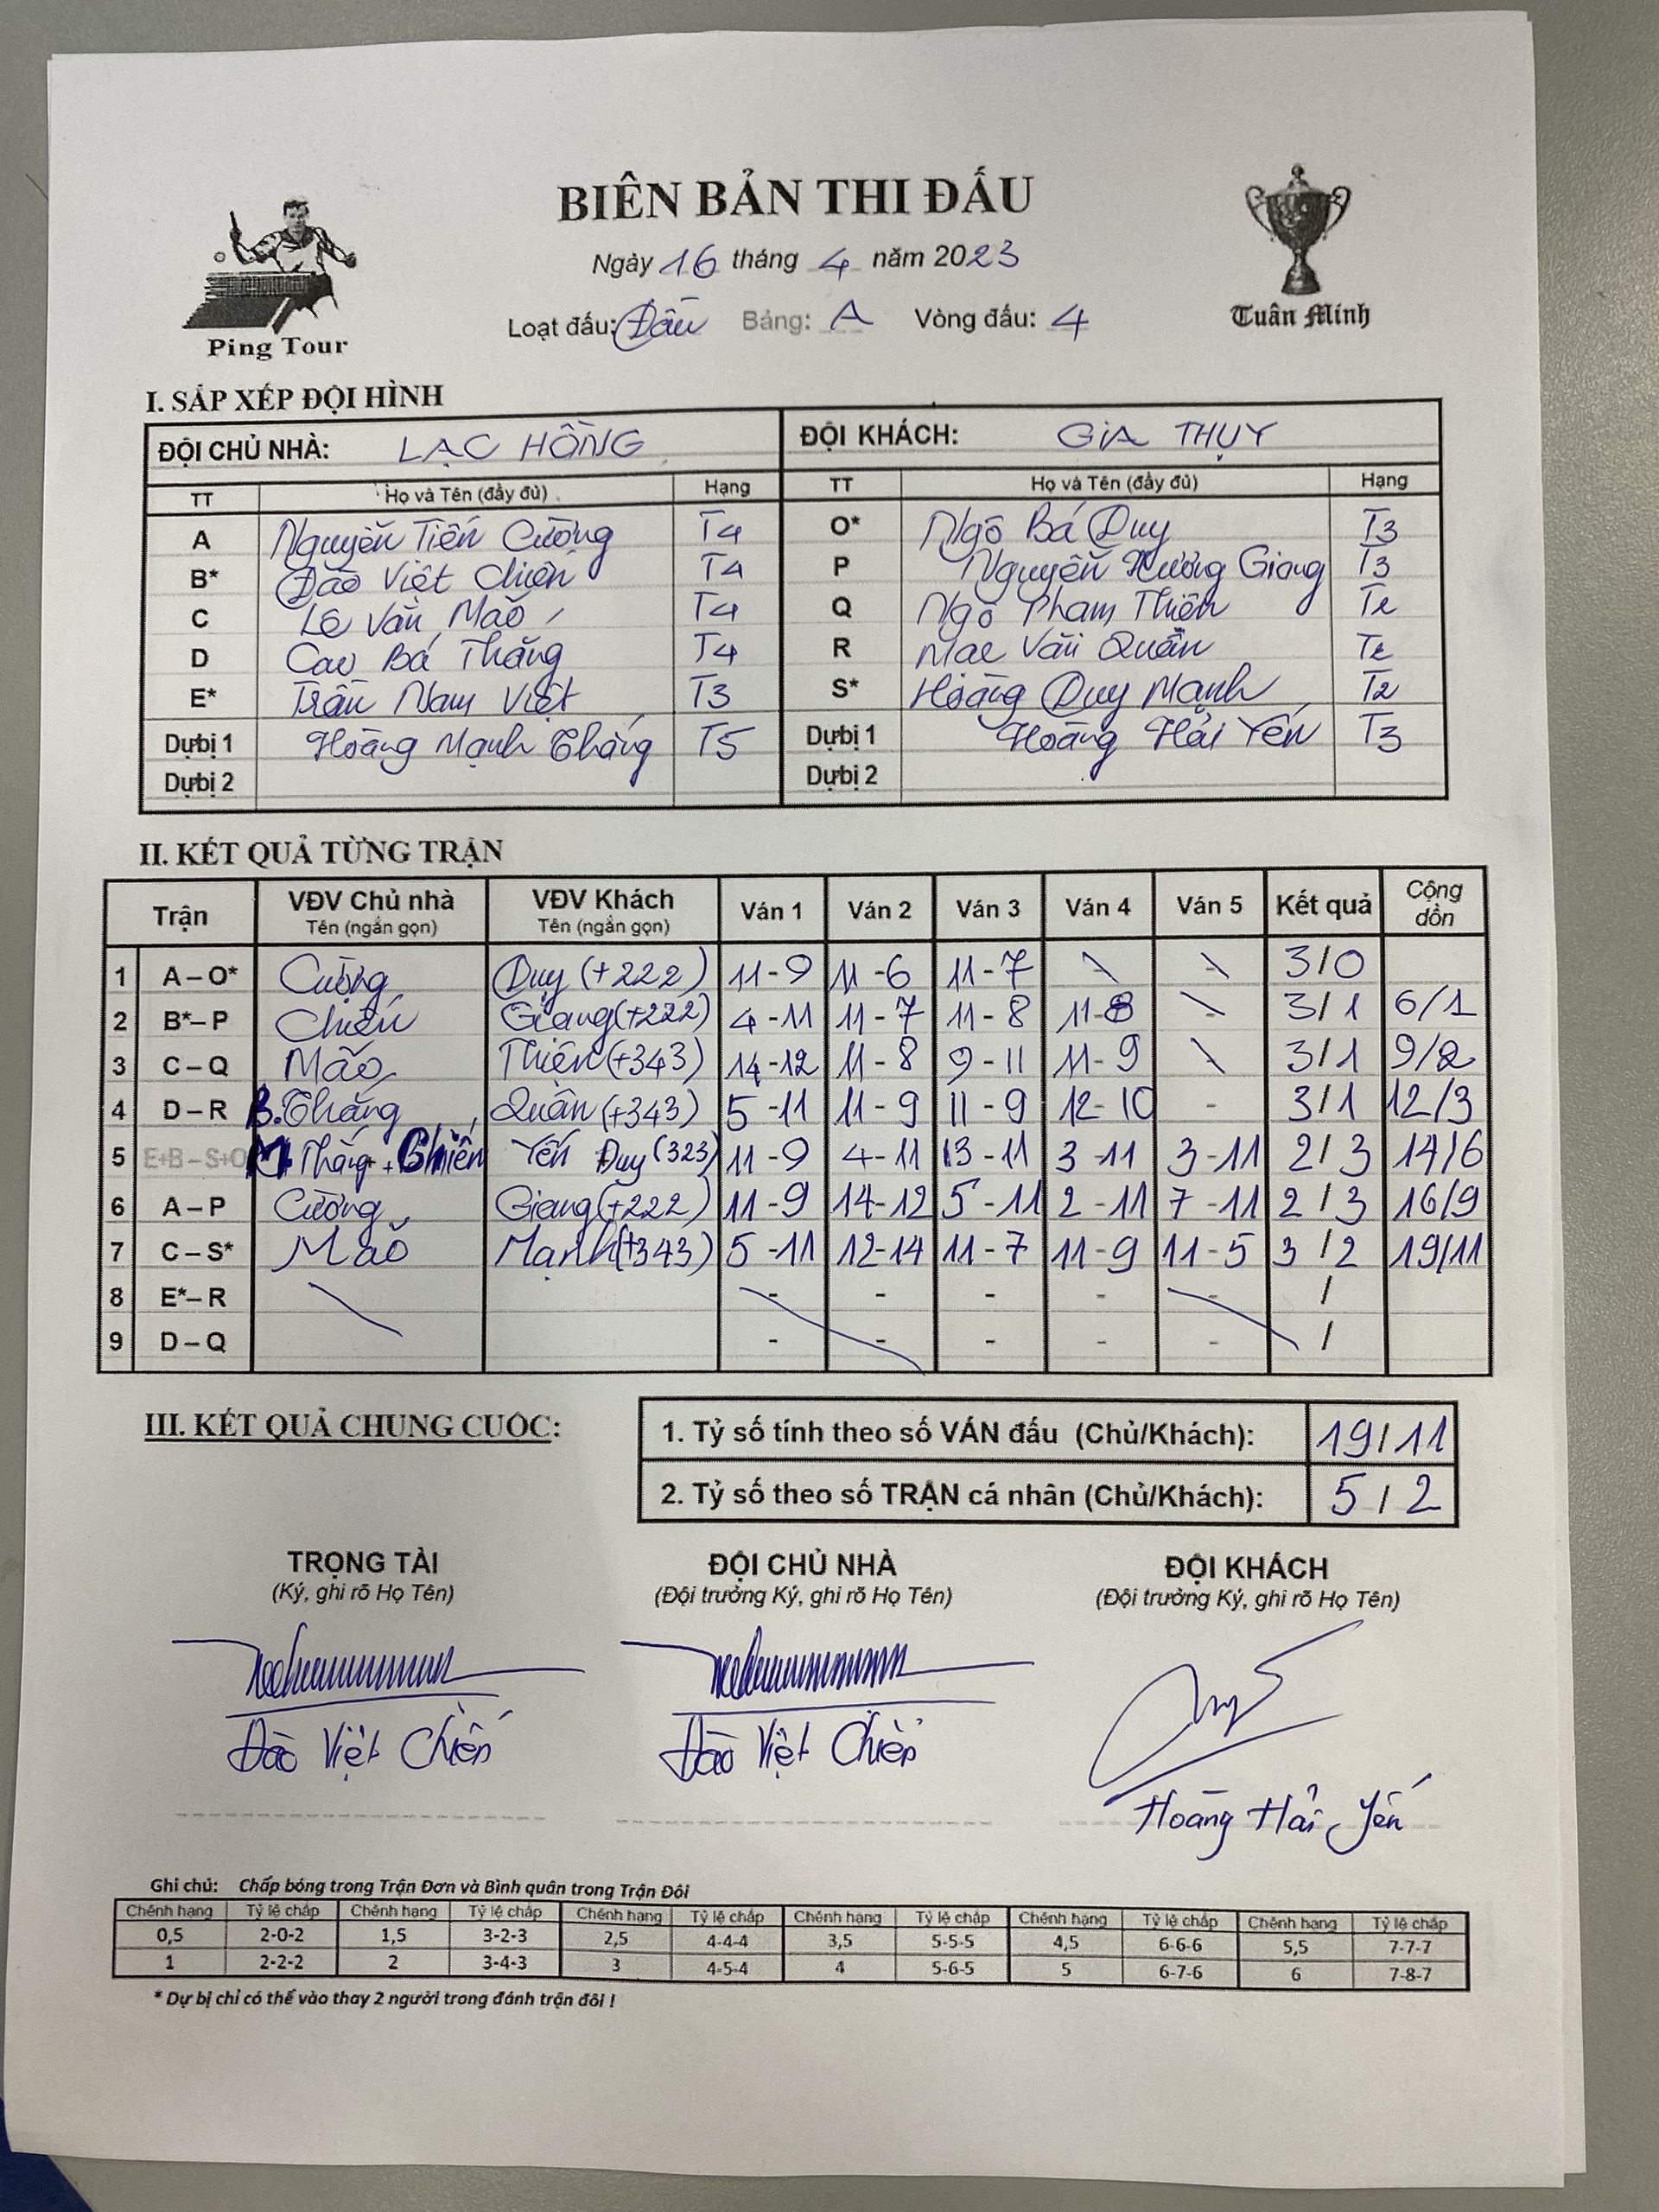 BIÊN BẢN THI ĐẤU
Ngày 16 tháng 4 năm 2023
Loạt đấu: Đấu Bảng: A Vòng đấu: 4
Ping Tour
Tuân Minh
I. SẮP XẾP ĐỘI HÌNH
ĐỘI CHỦ NHÀ: LẠC HỒNG ĐỘI KHÁCH: GIA THỤY
TT Họ và Tên (đầy đủ) Hạng TT Họ và Tên (đầy đủ) Hạng
A Nguyễn Tiến Cường T4 O* Ngô Bá Duy T3
B* Đào Việt Chiến T4 P Nguyễn Hương Giang T3
C Lê Văn Mão T4 Q Ngô Phạm Thiên T2
D Cao Bá Thắng T4 R Mạc Văn Quân T2
E* Trần Nam Việt T3 S* Hoàng Duy Mạnh T2
Dự bị 1 Hoàng Mạnh Thắng T5 Dự bị 1 Hoàng Hải Yến T3
Dự bị 2 Dự bị 2
II. KẾT QUẢ TỪNG TRẬN
Trận VĐV Chủ nhà VĐV Khách Ván 1 Ván 2 Ván 3 Ván 4 Ván 5 Kết quả Cộng dồn
Tên (ngắn gọn) Tên (ngắn gọn)
1 A – O* Cường Duy (+222) 11-9 11-6 11-7 - - 3/0
2 B*– P Chiến Giang (+222) 4-11 11-7 11-8 11-8 - 3/1 6/1
3 C – Q Mão Thiên (+343) 14-12 11-8 9-11 11-9 - 3/1 9/2
4 D – R B. Thắng Quân (+343) 5-11 11-9 11-9 12-10 - 3/1 12/3
5 E+B – S+O M Thắng + Chiến Yến Duy (323) 11-9 4-11 13-11 3-11 3-11 2/3 14/6
6 A – P Cường Giang (+222) 11-9 14-12 5-11 2-11 7-11 2/3 16/9
7 C – S* Mão Mạnh (+343) 5-11 12-14 11-7 11-9 11-5 3/2 19/11
8 E*– R - - - - - /
9 D – Q - - - - - /
III. KẾT QUẢ CHUNG CUỘC:
1. Tỷ số tính theo số VÁN đấu (Chủ/Khách): 19/11
2. Tỷ số theo số TRẬN cá nhân (Chủ/Khách): 5/2
TRỌNG TÀI ĐỘI CHỦ NHÀ ĐỘI KHÁCH
(Ký, ghi rõ Họ Tên) (Đội trưởng Ký, ghi rõ Họ Tên) (Đội trưởng Ký, ghi rõ Họ Tên)
Đào Việt Chiến Đào Việt Chiến
Hoàng Hải Yến
Ghi chú: Chấp bóng trong Trận Đơn và Bình quân trong Trận Đôi
Chênh hạng Tỷ lệ chấp Chênh hạng Tỷ lệ chấp Chênh hạng Tỷ lệ chấp Chênh hạng Tỷ lệ chấp Chênh hạng Tỷ lệ chấp Chênh hạng Tỷ lệ chấp
0,5 2-0-2 1,5 3-2-3 2,5 4-4-4 3,5 5-5-5 4,5 6-6-6 5,5 7-7-7
1 2-2-2 2 3-4-3 3 4-5-4 4 5-6-5 5 6-7-6 6 7-8-7
* Dự bị chỉ có thể vào thay 2 người trong đánh trận đôi !